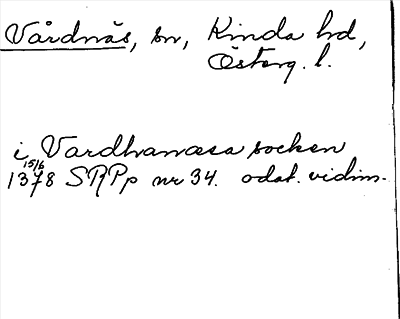 Vårdnäs, sn, Kinda hd,
Österg. l.
i Vardhanæsa socken
15/6
1378 SRPp nr 34. odat. vidim.